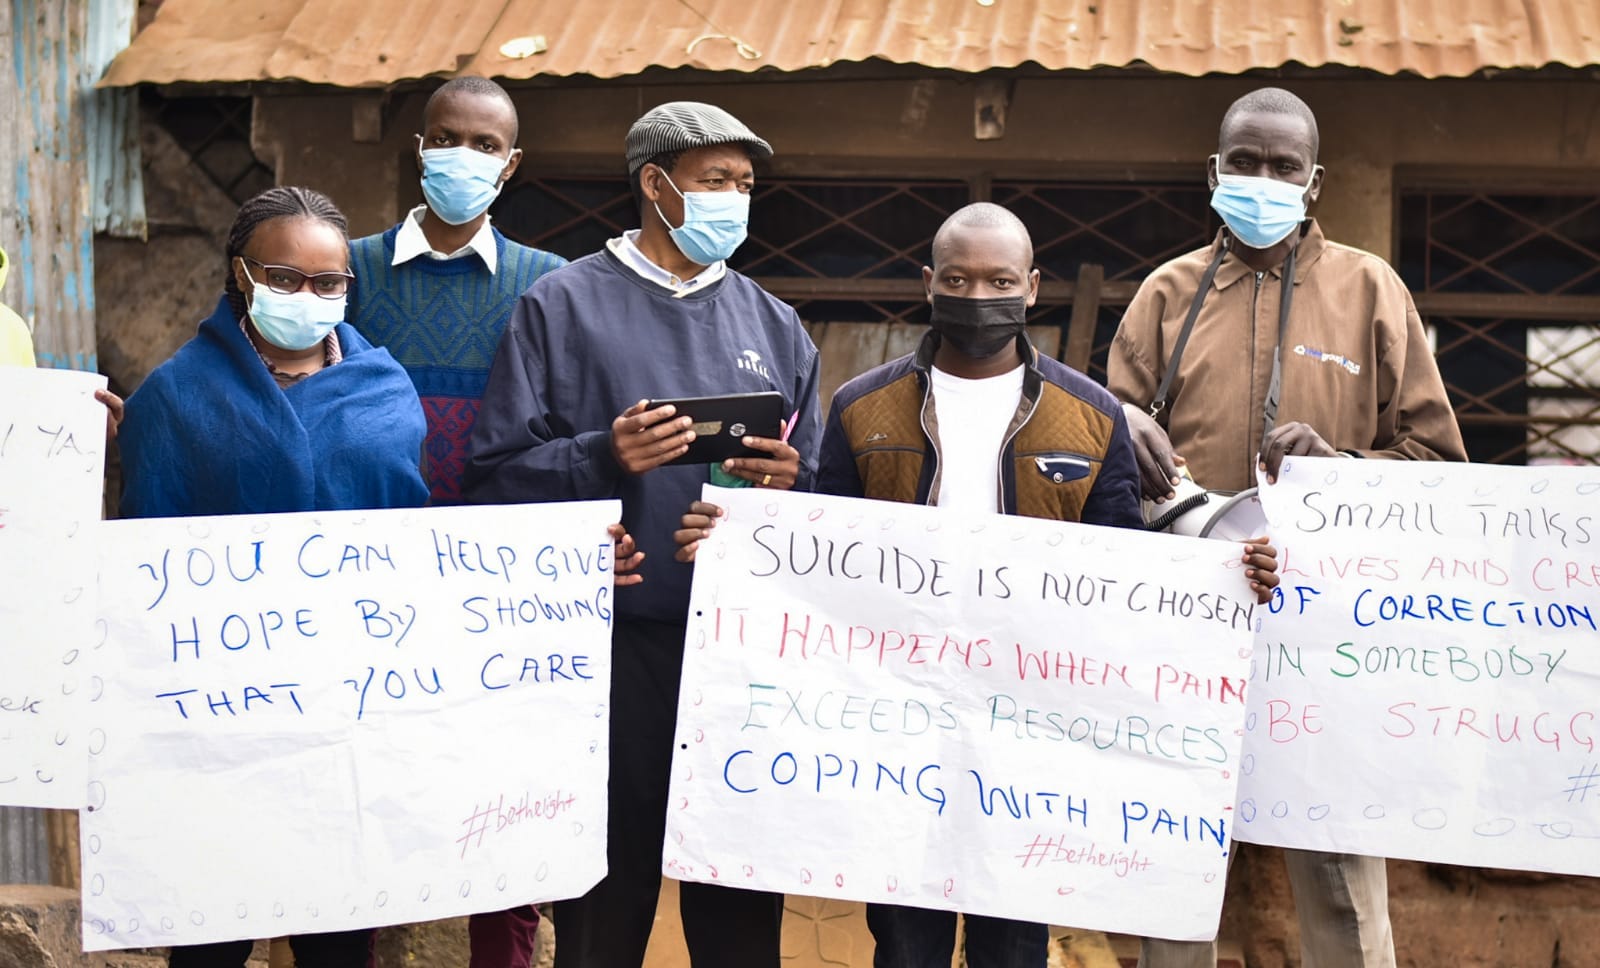 YA,
ek
YOU CAN HELP GIVE
HOPE BY SHOWING
THAT YOU CARE
#bethelight
SUICIDE IS NOT CHOSEN
IT HAPPENS WHEN PAIN
EXCEEDS RESOURCES
COPING WITH PAIN.
#bethelight
SMALL TALKS
LIVES AND CRE
OF CORRECTION
IN SOMEBODY
BE STRUGG
#